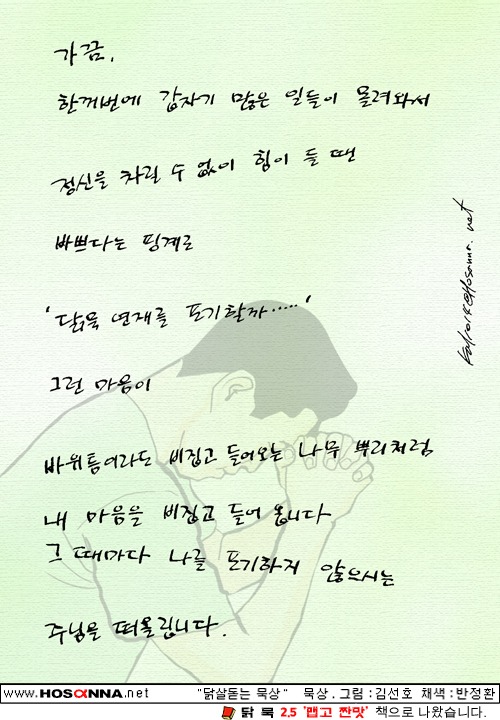 가끔,
한꺼번에 갑자기 많은 일들이 몰려와서
정신을 차릴 수 없이 힘이 들 땐
바쁘다는 핑계로
'닭묵 연재를 포기할까.....'
그런 마음이
바위틈이라도 비집고 들어오는 나무 뿌리처럼
내 마음을 비집고 들어 옵니다
그 때마다 나를 포기하지 않으시는
주님을 떠올립니다.
www.HOSANNA.net "닭살돋는 묵상" 묵상.그림:김선호 채색:반정환
닭 묵 2.5 '맵고 짠맛' 책으로 나왔습니다.